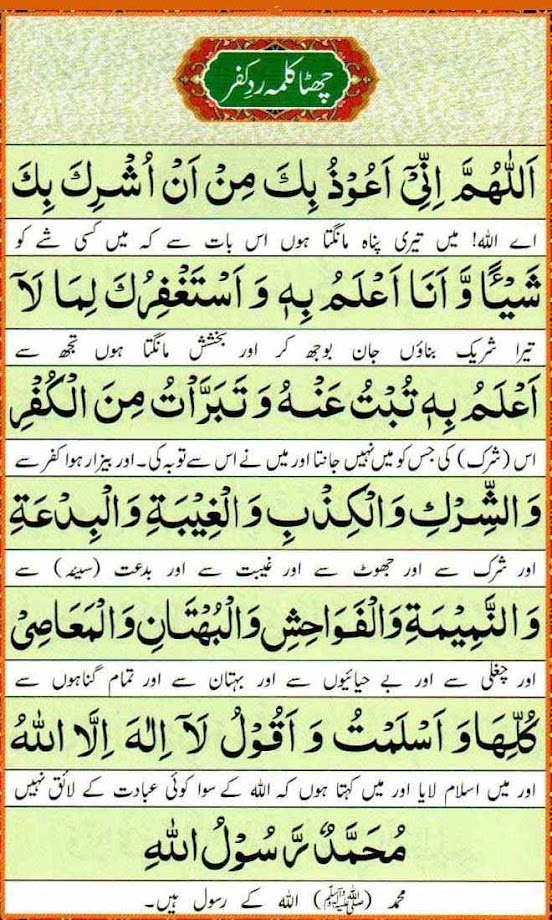 چھٹا کلمہ رد کفر
اَللّٰهُمَّ اِنِّیْٓ اَعُوْذُ بِكَ مِنْ اَنْ اُشْرِكَ بِكَ
اے اللہ! میں تیری پناہ مانگتا ہوں اس بات سے کہ میں کسی شے کو
شَیْـًٔا وَّ اَنَا اَعْلَمُ بِهٖ وَ اَسْتَغْفِرُكَ لِمَا لَآ
تیرا شریک بناؤں جان بوجھ کر اور بخشش مانگتا ہوں تجھ سے
اَعْلَمُ بِهٖ تُبْتُ عَنْهُ وَ تَبَرَّاْتُ مِنَ الْكُفْرِ
اس (شرک) کی جس کو میں نہیں جانتا اور میں نے اس سے توبہ کی۔ اور بیزار ہوا کفر سے
وَالشِّرْكِ وَالْكِذْبِ وَالْغِیْبَةِ وَالْبِدْعَةِ
اور شرک سے اور جھوٹ سے اور غیبت سے اور بدعت (سیئہ) سے
وَالنَّمِیْمَةِ وَالْفَوَاحِشِ وَالْبُهْتَانِ وَالْمَعَاصِیْ
اور چغلی سے اور بے حیائیوں سے اور بہتان سے اور تمام گناہوں سے
كُلِّهَا وَ اَسْلَمْتُ وَ اَقُوْلُ لَآ اِلٰهَ اِلَّا اللّٰهُ
اور میں اسلام لایا اور میں کہتا ہوں کہ اللہ کے سوا کوئی عبادت کے لائق نہیں
مُحَمَّدٌ رَّسُوْلُ اللّٰهِ
محمد (ﷺ) اللہ کے رسول ہیں۔